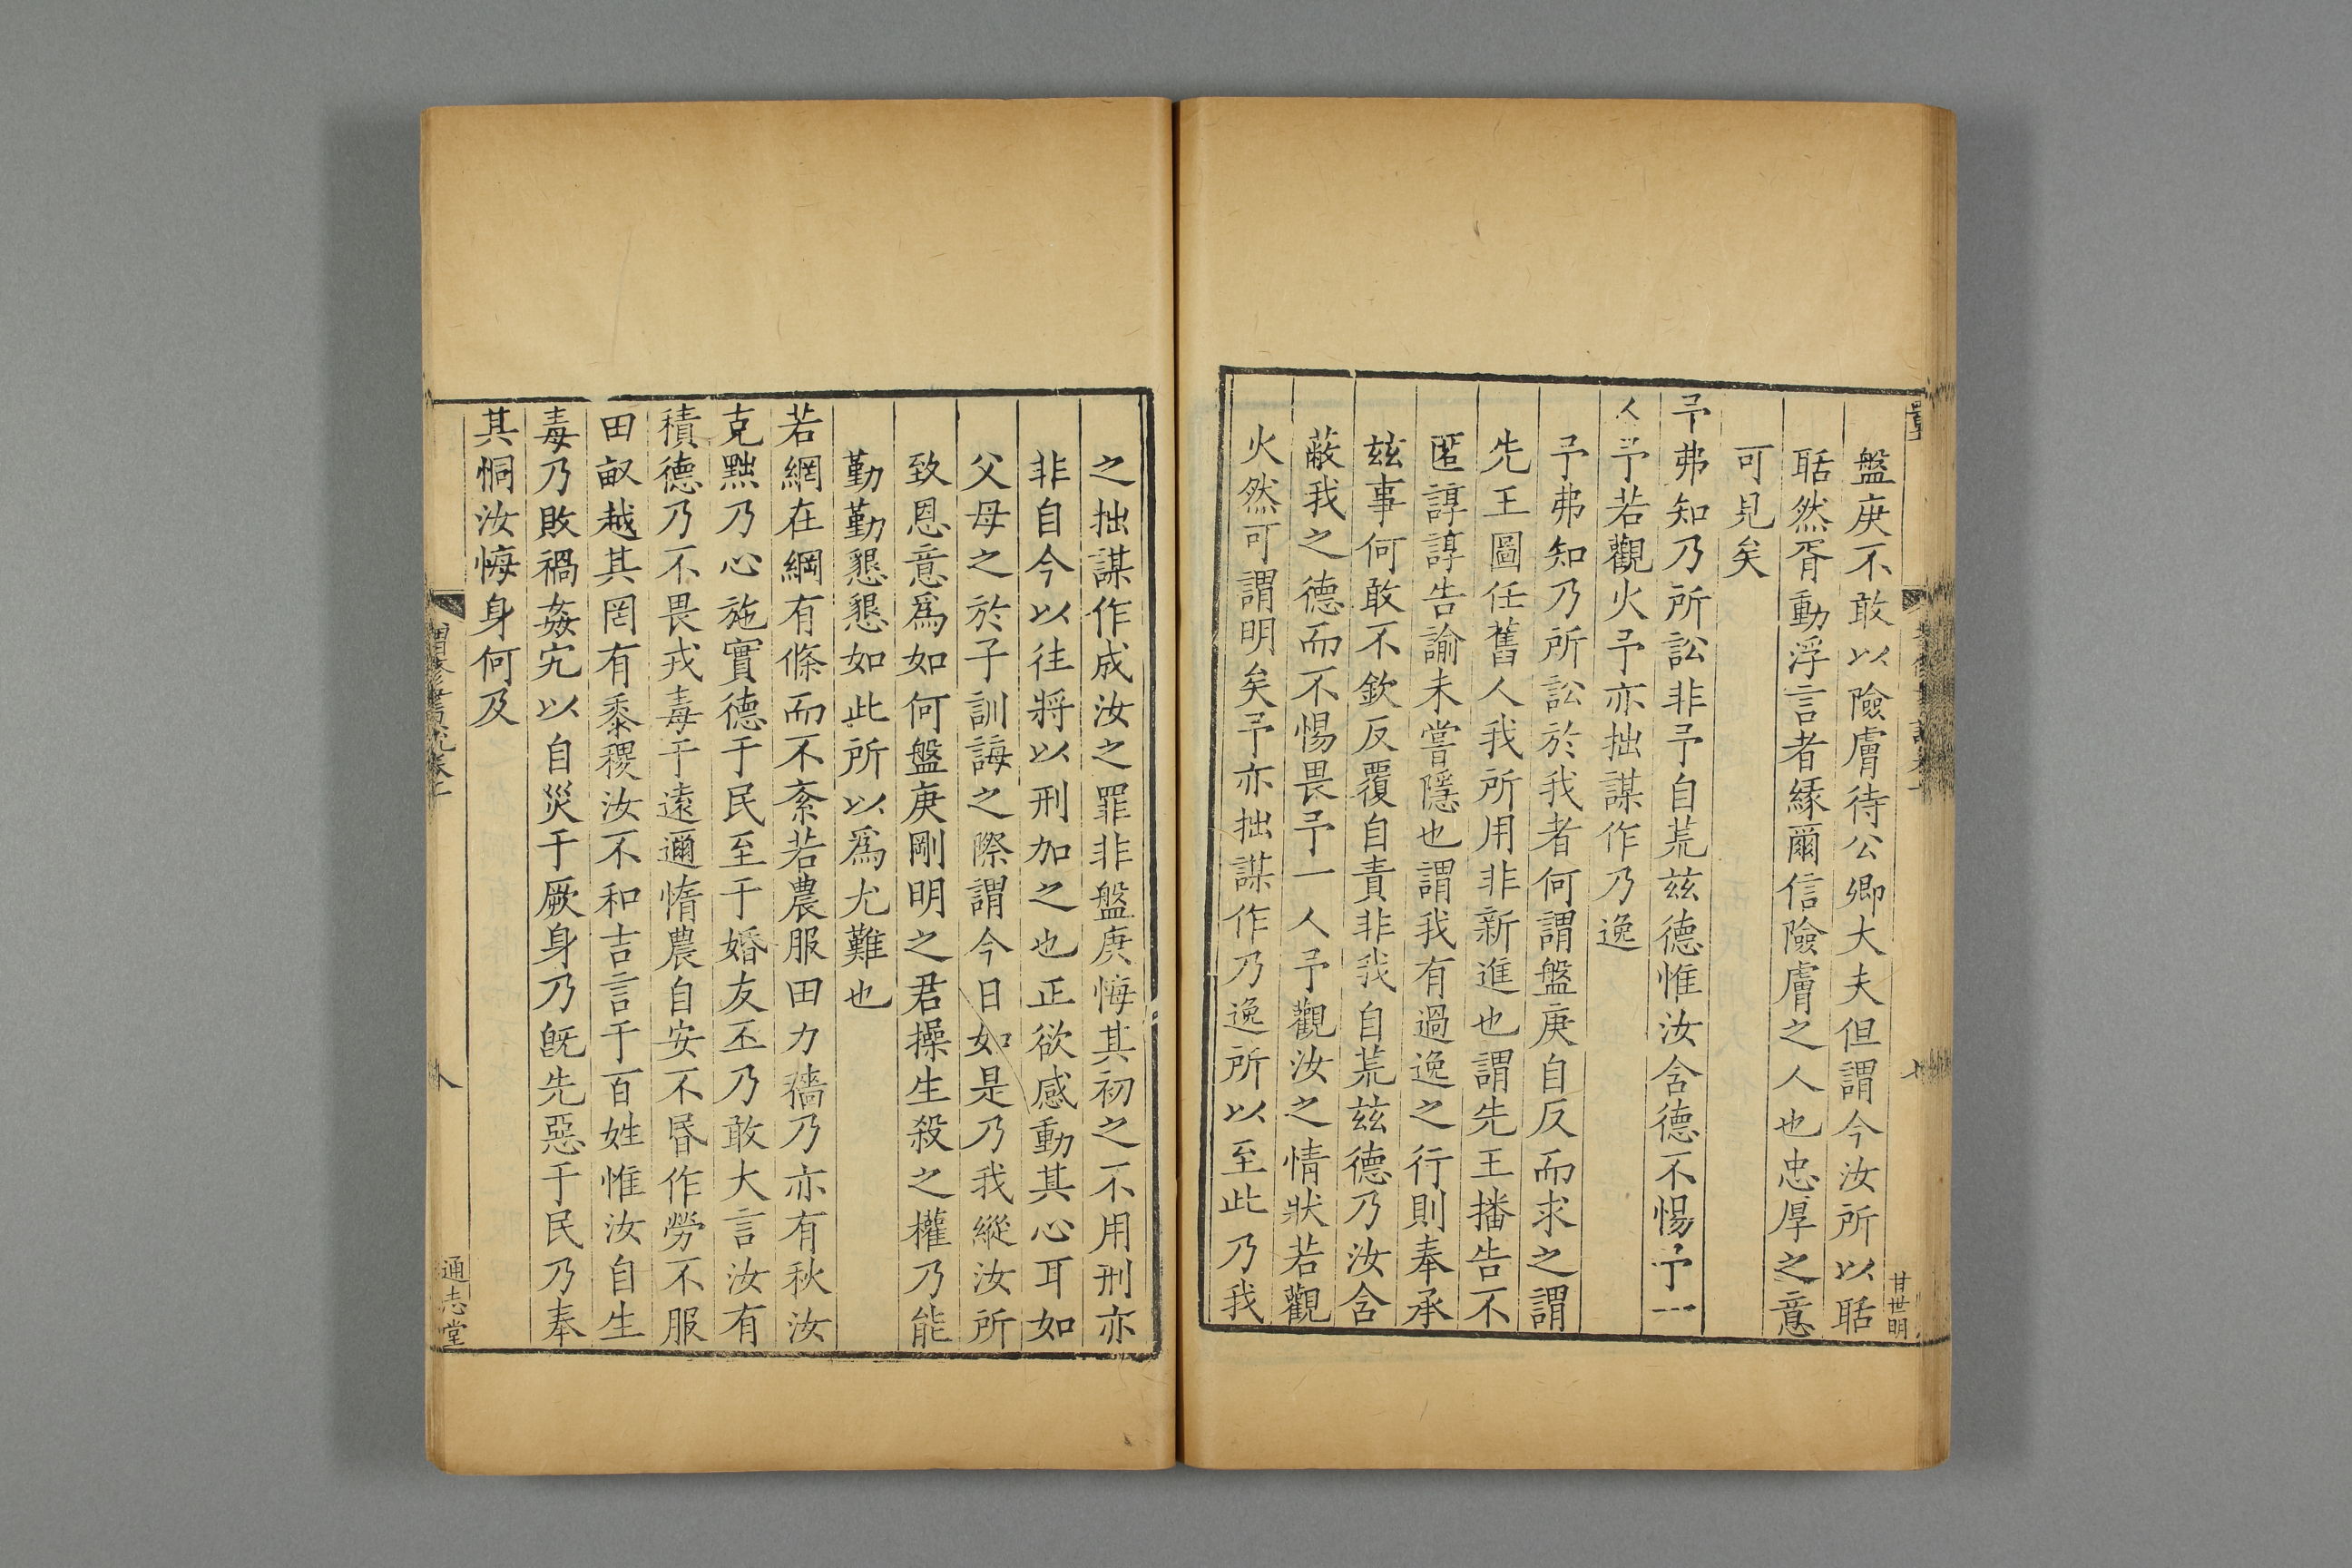 盤庚不敢以險膚待公卿大夫但謂今汝所以聒
聒然胥動浮言者緣爾信險膚之人也忠厚之意
可見矣
予弗知乃所訟非予自荒茲德惟汝含德不惕予一
人予若觀火予亦拙謀作乃逸
予弗知乃所訟於我者何謂盤庚自反而求之謂
先王圖任舊人我所用非新進也謂先王播告不
匿諄諄告諭未嘗隱也謂我有過逸之行則奉承
茲事何敢不欽反覆自責非我自荒茲德乃汝含
蔽我之德而不惕畏予一人予觀汝之情狀若觀
火然可謂明矣予亦拙謀作乃逸所以至此乃我
甘世明
之拙謀作成汝之罪非盤庚悔其初之不用刑亦
非自今以往將以刑加之也正欲感動其心耳如
父母之於子訓誨之際謂今日如是乃我縱汝所
致恩意爲如何盤庚剛明之君操生殺之權乃能
勤勤懇懇如此所以爲尤難也
若網在綱有條而不紊若農服田力穡乃亦有秋汝
克黜乃心施實德于民至于婚友丕乃敢大言汝有
積德乃不畏戎毒于遠邇惰農自安不昬作勞不服
田畝越其罔有黍稷汝不和吉言于百姓惟汝自生
毒乃敗禍姦宄以自災于厥身乃旣先惡于民乃奉
其恫汝悔身何及
八
通志堂